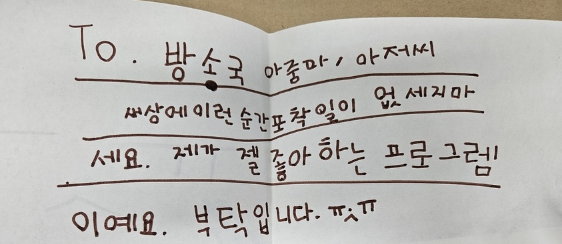 To. 방소국 아줌마, 아저씨
새상에이런순간포착일이 없세지마
세요. 제가 젤 좋아하는 프로그렘
이예요. 부탁입니다. ㅠ;ㅠ